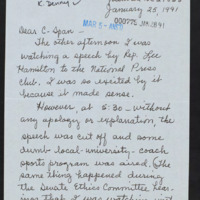 K. Dennis
January 25, 1991
MAR 5 - ANS'D
000775 JAN 28 91
Dear C-Span -
The other afternoon I was
watching a speech by Rep. Lee
Hamilton to the National Press
Club. I was so excited by it
because it made sense.
However, at 5:30 - without
any apology or explanation the
speech was cut off and some
dumb local-university-coach
sports program was aired. (The
same thing happened during
the Senate Ethics Committee Hear-
ings that I was watching